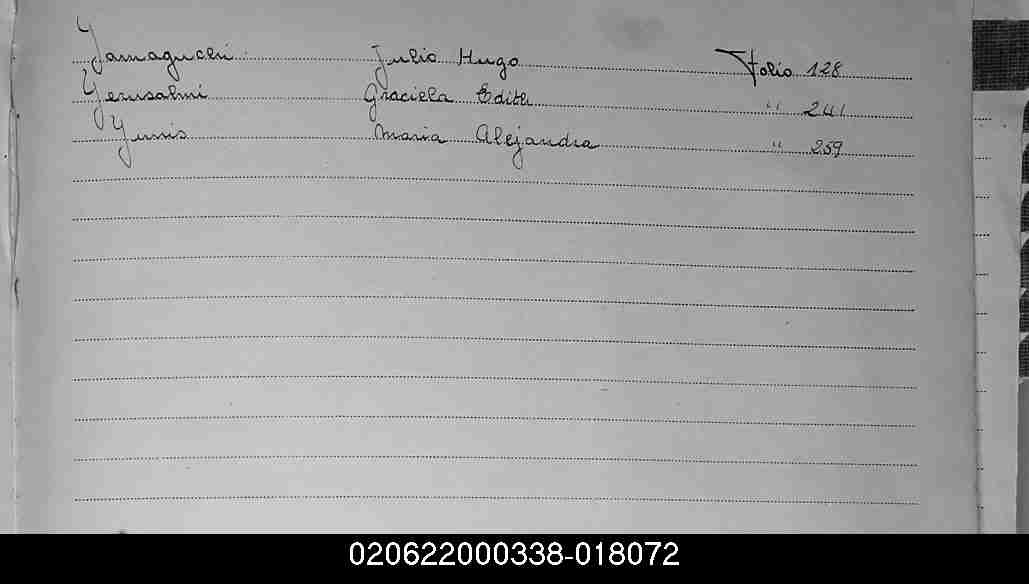 Yamaguchi Julio Hugo Folio 128
Yerusalmi Graciela Edith " 241
Yunis Maria Alejandra " 259
020622000338-018072